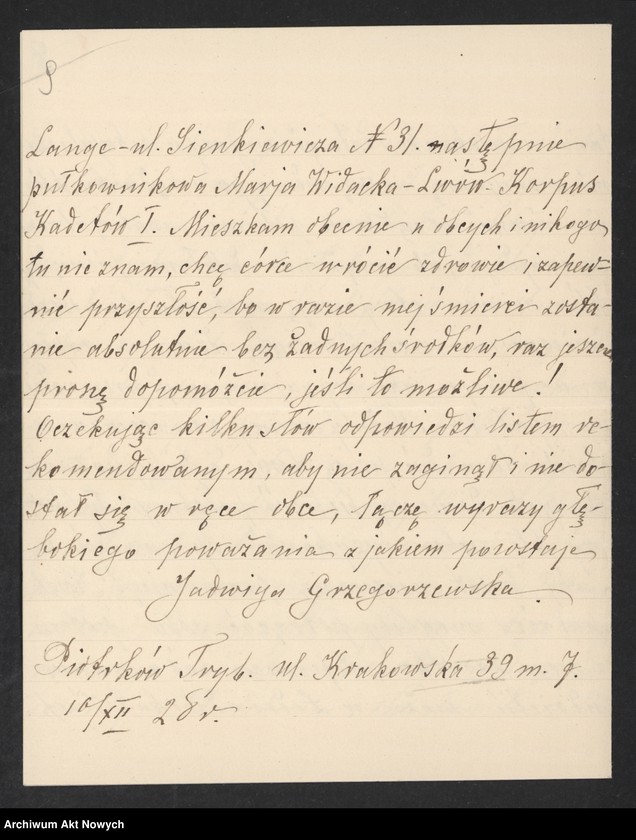 9
Lange - ul. Sienkiewicza № 31. następnie
pułkownikowa Marja Widacka - Lwów - Korpus
Kadetów I. Mieszkam obecnie u obcych i nikogo
tu nie znam, chcę córce wrócić zdrowie i zapew-
nić przyszłość, bo w razie mej śmierci zosta-
nie absolutnie bez żadnych środków, raz jeszcze
proszę dopomóżcie, jeśli to możliwe!
Oczekując kilku słów odpowiedzi listem re-
komendowanym, aby nie zaginął i nie do-
stał się w ręce obce, łączę wyrazy głę-
bokiego poważania z jakiem powstaję
Jadwiga Grzegorzewska
Piotrków Tryb. ul. Krakowska 39 m. 7.
10/XII 28 r.
Archiwum Akt Nowych